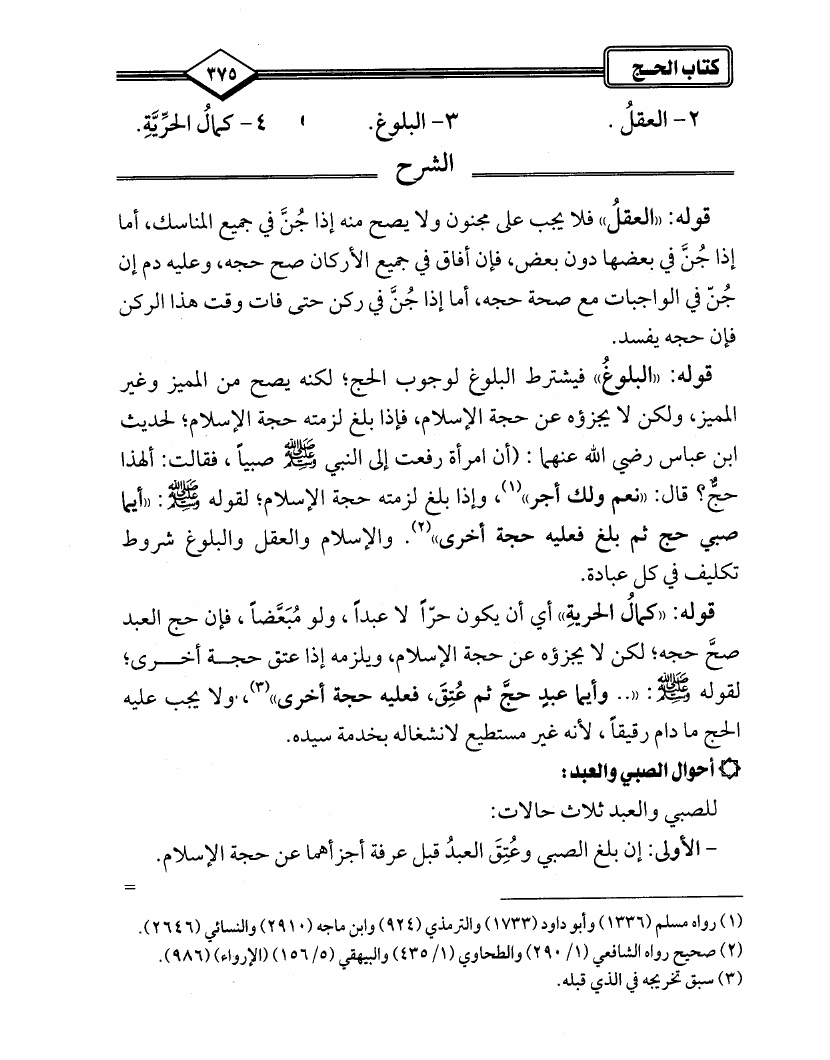 كتاب الحج
٣٧٥
٢- العقلُ . ٣- البلوغ. ٤- كمالُ الحرِّيَّةِ.
الشرح
قوله: «العقلُ» فلا يجب على مجنون ولا يصح منه إذا جُنَّ في جميع المناسك، أما
إذا جُنَّ في بعضها دون بعض، فإن أفاق في جميع الأركان صح حجه، وعليه دم إن
جُنّ في الواجبات مع صحة حجه، أما إذا جُنَّ في ركن حتى فات وقت هذا الركن
فإن حجه يفسد.
قوله: «البلوغُ» فيشترط البلوغ لوجوب الحج؛ لكنه يصح من المميز وغير
المميز، ولكن لا يجزؤه عن حجة الإسلام، فإذا بلغ لزمته حجة الإسلام؛ لحديث
ابن عباس رضي الله عنهما : (أن امرأة رفعت إلى النبي ﷺ صبياً ، فقالت: ألهذا
حجٌّ؟ قال: «نعم ولك أجر»(١)، وإذا بلغ لزمته حجة الإسلام؛ لقوله ﷺ: «أيما
صبي حج ثم بلغ فعليه حجة أخرى»(٢). والإسلام والعقل والبلوغ شروط
تكليف في كل عبادة.
قوله: «كمالُ الحريةِ» أي أن يكون حرّاً لا عبداً ، ولو مُبَعَّضاً ، فإن حج العبد
صحَّ حجه؛ لكن لا يجزؤه عن حجة الإسلام، ويلزمه إذا عتق حجـة أخـــرى؛
لقوله ﷺ: «.. وأيما عبدٍ حجَّ ثم عُتِقَ، فعليه حجة أخرى»(٣)، ولا يجب عليه
الحج ما دام رقيقاً ، لأنه غير مستطيع لانشغاله بخدمة سيده.
۞ أحوال الصبي والعبد:
للصبي والعبد ثلاث حالات:
- الأولى: إن بلغ الصبي وعُتِقَ العبدُ قبل عرفة أجزأهما عن حجة الإسلام.
=
(١) رواه مسلم (١٣٣٦) وأبو داود (١٧٣٣) والترمذي (٩٢٤) وابن ماجه (٢٩١٠) والنسائي (٢٦٤٦).
(٢) صحيح رواه الشافعي (١/ ٢٩٠) والطحاوي (١/ ٤٣٥) والبيهقي (٥/ ١٥٦) (الإرواء) (٩٨٦).
(٣) سبق تخريجه في الذي قبله.